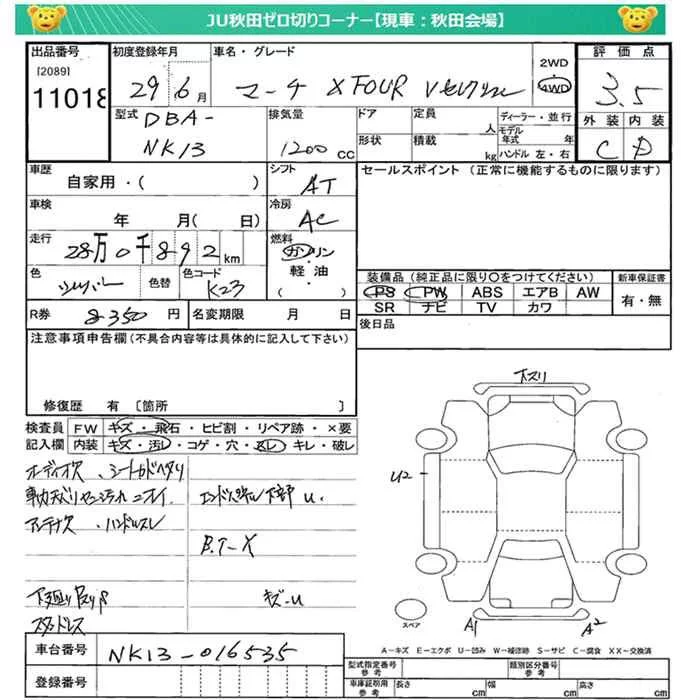 JU秋田ゼロ切りコーナー【現車：秋田会場】
出品番号 初度登録年月 車名・グレード 2WD 4WD 評価点
[2089]
11018 29年6月 マーチ X FOUR Vセレクション 3.5
型式 DBA-NK13 排気量 1200cc ドア 定員 人 ディーラー・並行 外装 内装
形状 積載 kg モデル年式 年 ハンドル 左・右 C D
車歴 自家用・( ) シフト AT セールスポイント (正常に機能するものに限ります)
車検 年 月( 日) 冷房 AC
走行 28万0千892km 燃料 ガソリン 軽・油 ・( )
色 シルバー 色替 色コード K23
装備品(純正品に限り○をつけてください) 新車保証書
PS PW ABS エアB AW 有・無
SR ナビ TV カワ
R券 8350円 名変期限 月 日 後日品
注意事項申告欄(不具合内容等は具体的に記入して下さい)
修復歴 有 〔箇所 〕
検査員記入欄 FW キズ・飛石・ヒビ割・リペア跡・×要
内装 キズ・汚レ・コゲ・穴・スレ・キレ・破レ
オーディオ欠 、シートカドヘタリ
車内天張りヤニ汚れ ニオイ エンドパネル下部 U.
アンテナ欠 、ハンドルスレ
B.T-X
下廻りサビ キズ-U
スタッドレス
下スリ
U2
スペア
A1 A2
A－キズ E－エクボ U－凹み W－補修跡 S－サビ C－腐食 XX－交換済
車台番号 NK13-016535
登録番号
型式指定番号 類別区分番号
車庫証明用参考 長さ cm 幅 cm 高さ cm